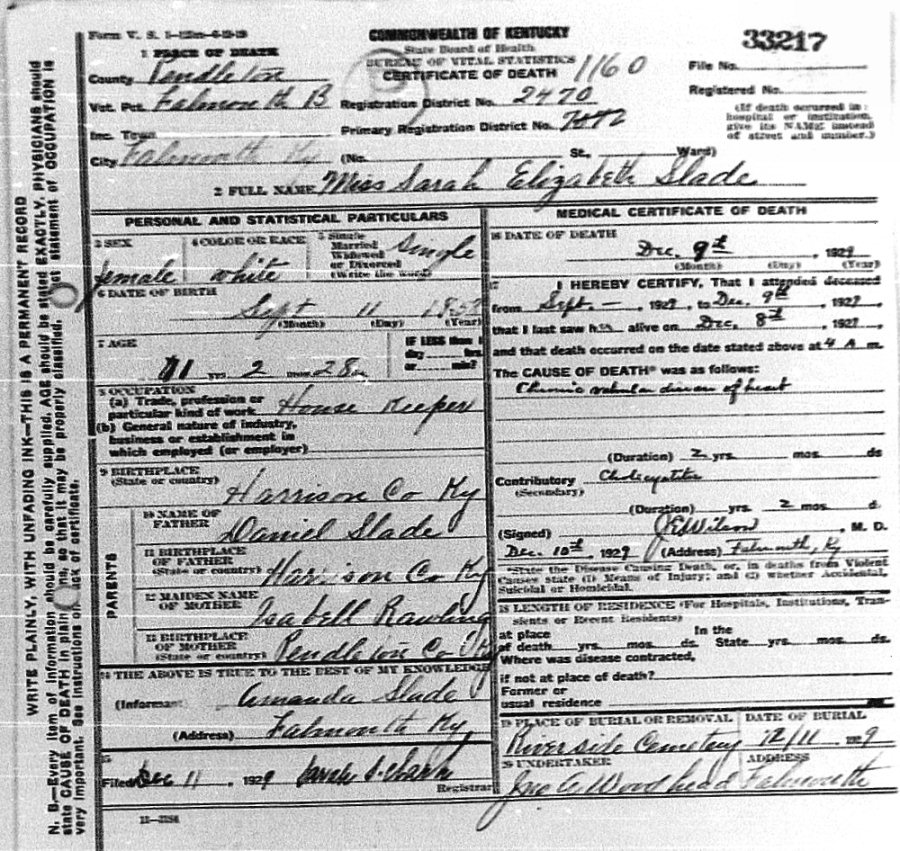 Form V. S. 1-125m-6-19-19
COMMONWEALTH OF KENTUCKY
State Board of Health
BUREAU OF VITAL STATISTICS
CERTIFICATE OF DEATH
1160
33217
File No.
Registered No.
(If death occurred in a hospital or institution, give its NAME instead of street and number.)
1 PLACE OF DEATH
County Pendleton
Vot. Pct. Falmouth B Registration District No. 2470
Inc. Town Primary Registration District No.
City Falmouth Ky (No. St., Ward)
2 FULL NAME Miss Sarah Elizabeth Slade
PERSONAL AND STATISTICAL PARTICULARS
3 SEX
female
4 COLOR OR RACE
white
5 Single
Married
Widowed
or Divorced
(Write the word)
Single
6 DATE OF BIRTH
Sept 11 1858
(Month) (Day) (Year)
7 AGE
71 yrs 2 mos 28 ds
IF LESS than 1
day hrs.
or min?
8 OCCUPATION
(a) Trade, profession or
particular kind of work House Keeper
(b) General nature of industry,
business or establishment in
which employed (or employer)
9 BIRTHPLACE
(State or country)
Harrison Co Ky
PARENTS
10 NAME OF
FATHER
Daniel Slade
11 BIRTHPLACE
OF FATHER
(State or country) Harrison Co Ky
12 MAIDEN NAME
OF MOTHER
Isabell Rawling
13 BIRTHPLACE
OF MOTHER
(State or country) Pendleton Co Ky
14 THE ABOVE IS TRUE TO THE BEST OF MY KNOWLEDGE
(Informant Amanda Slade
(Address) Falmouth Ky
15
Filed Dec 11, 1929
Registrar
11-3184
MEDICAL CERTIFICATE OF DEATH
16 DATE OF DEATH
Dec. 9th, 1929
(Month) (Day) (Year)
17 I HEREBY CERTIFY, That I attended deceased
from Sept. -, 1929, to Dec. 9th, 1929,
that I last saw her alive on Dec. 8th, 1929,
and that death occurred on the date stated above at 4 A m
The CAUSE OF DEATH* was as follows:
Chronic valvular disease of heart
(Duration) 2 yrs. mos. ds
Contributory Cholecystitis
(Secondary)
(Duration) yrs. 2 mos. d.
(Signed) J E Wilson, M. D.
Dec. 10th, 1929 (Address) Falmouth, Ky
*State the Disease Causing Death, or, in deaths from Violent
Causes state (1) Means of Injury; and (2) whether Accidental,
Suicidal or Homicidal.
18 LENGTH OF RESIDENCE (For Hospitals, Institutions, Tran-
sients or Recent Residents)
at place In the
of death yrs. mos. ds. State yrs. mos. ds.
Where was disease contracted,
if not at place of death?
Former or
usual residence
19 PLACE OF BURIAL OR REMOVAL
Riverside Cemetery
DATE OF BURIAL
12/11 1929
20 UNDERTAKER
Jno A Woodhead
ADDRESS
Falmouth
WRITE PLAINLY, WITH UNFADING INK—THIS IS A PERMANENT RECORD
N. B.—Every item of information should be carefully supplied. AGE should be stated EXACTLY. PHYSICIANS should
state CAUSE OF DEATH in plain so that it may be properly classified. statement of OCCUPATION is
very important. See instructions on back of certificate.